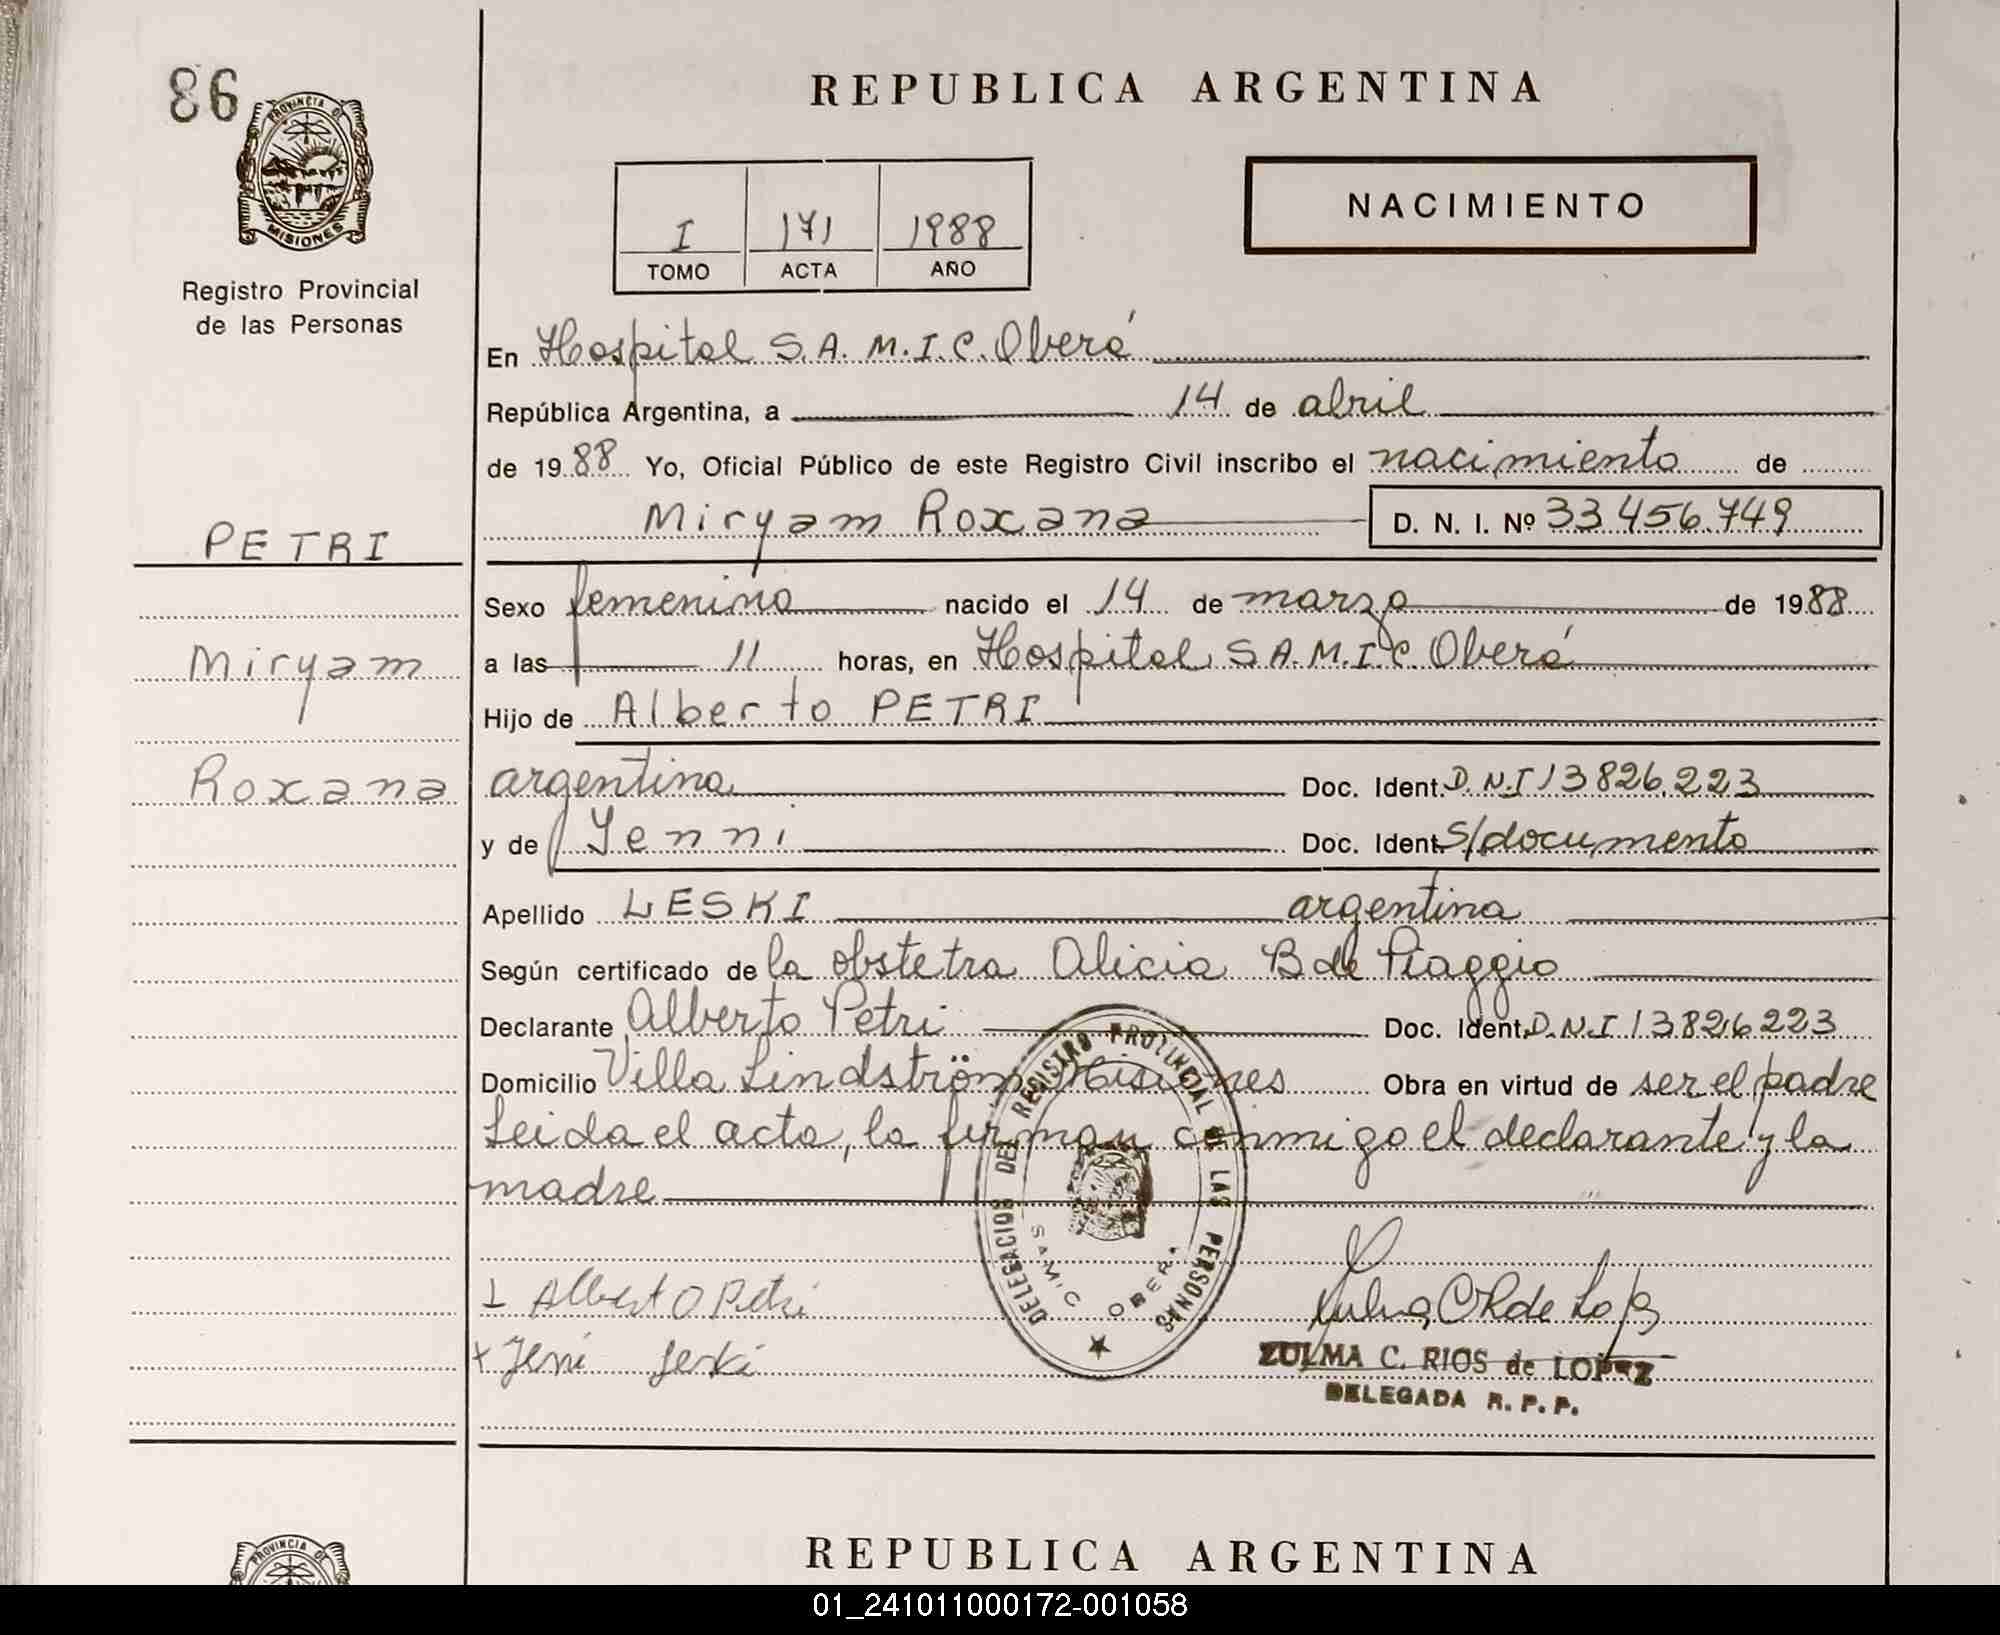 86
PROVINCIA DE
MISIONES
Registro Provincial
de las Personas
REPUBLICA ARGENTINA
I 171 1988
TOMO ACTA AÑO
NACIMIENTO
En Hospital S.A.M.I.C. Oberá
República Argentina, a 14 de abril
de 1988 Yo, Oficial Público de este Registro Civil inscribo el nacimiento de
Miryam Roxana D. N. I. Nº 33.456.749
PETRI
Miryam
Roxana
Sexo femenino nacido el 14 de marzo de 1988
a las 11 horas, en Hospital S.A.M.I.C. Oberá
Hijo de Alberto PETRI
argentina Doc. Ident. D.N.I 13.826.223
y de Yenni Doc. Ident. S/documento
Apellido LESKI argentina
Según certificado de la obstetra Alicia B de Piaggio
Declarante Alberto Petri Doc. Ident. D.N.I 13.826.223
Domicilio Villa Lindström Misiones Obra en virtud de ser el padre
Leida el acta, la firman conmigo el declarante y la
madre
DELEGACION DEL REGISTRO PROVINCIAL DE LAS PERSONAS
SAMIC OBERA
Alberto Petri
x Jeni Leski
ZULMA C. RIOS de LOPEZ
DELEGADA R. P. P.
PROVINCIA DE
REPUBLICA ARGENTINA
01_241011000172-001058